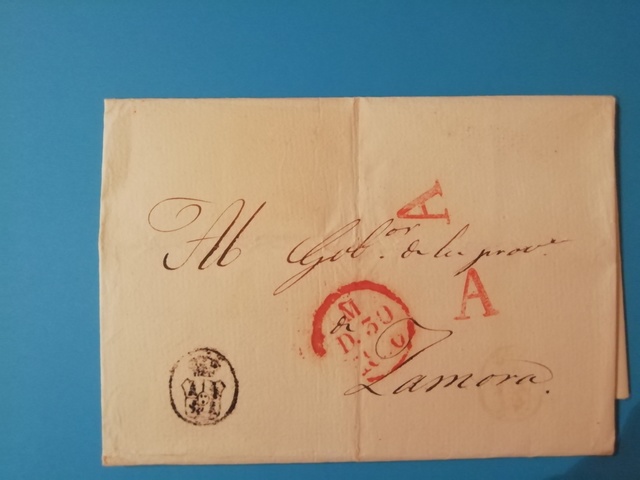 A
Al Gob.or de la prov.a
A
M
D. 30
de
Zamora.